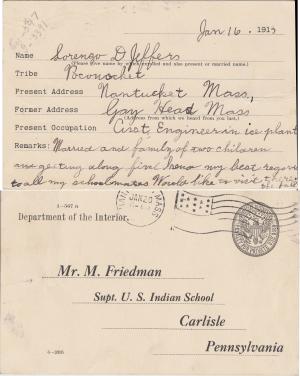 Jan 16. 1913
Name Lorenzo D Jeffers
(Please give name by which enrolled and also present or married name.)
Tribe
Present Address Nantucket Mass,
Former Address Gay Head Mass
(Address from which we heard from you last.)
Present Occupation Asst. Engineer in ice plant
Remarks: Married and family of two children
are getting along fine my best regards
to all my schoolmates Would like to visit there
MASS
JAN 20
1—567 a
Department of the Interior.
Mr. M. Friedman
Supt. U. S. Indian School
Carlisle
Pennsylvania